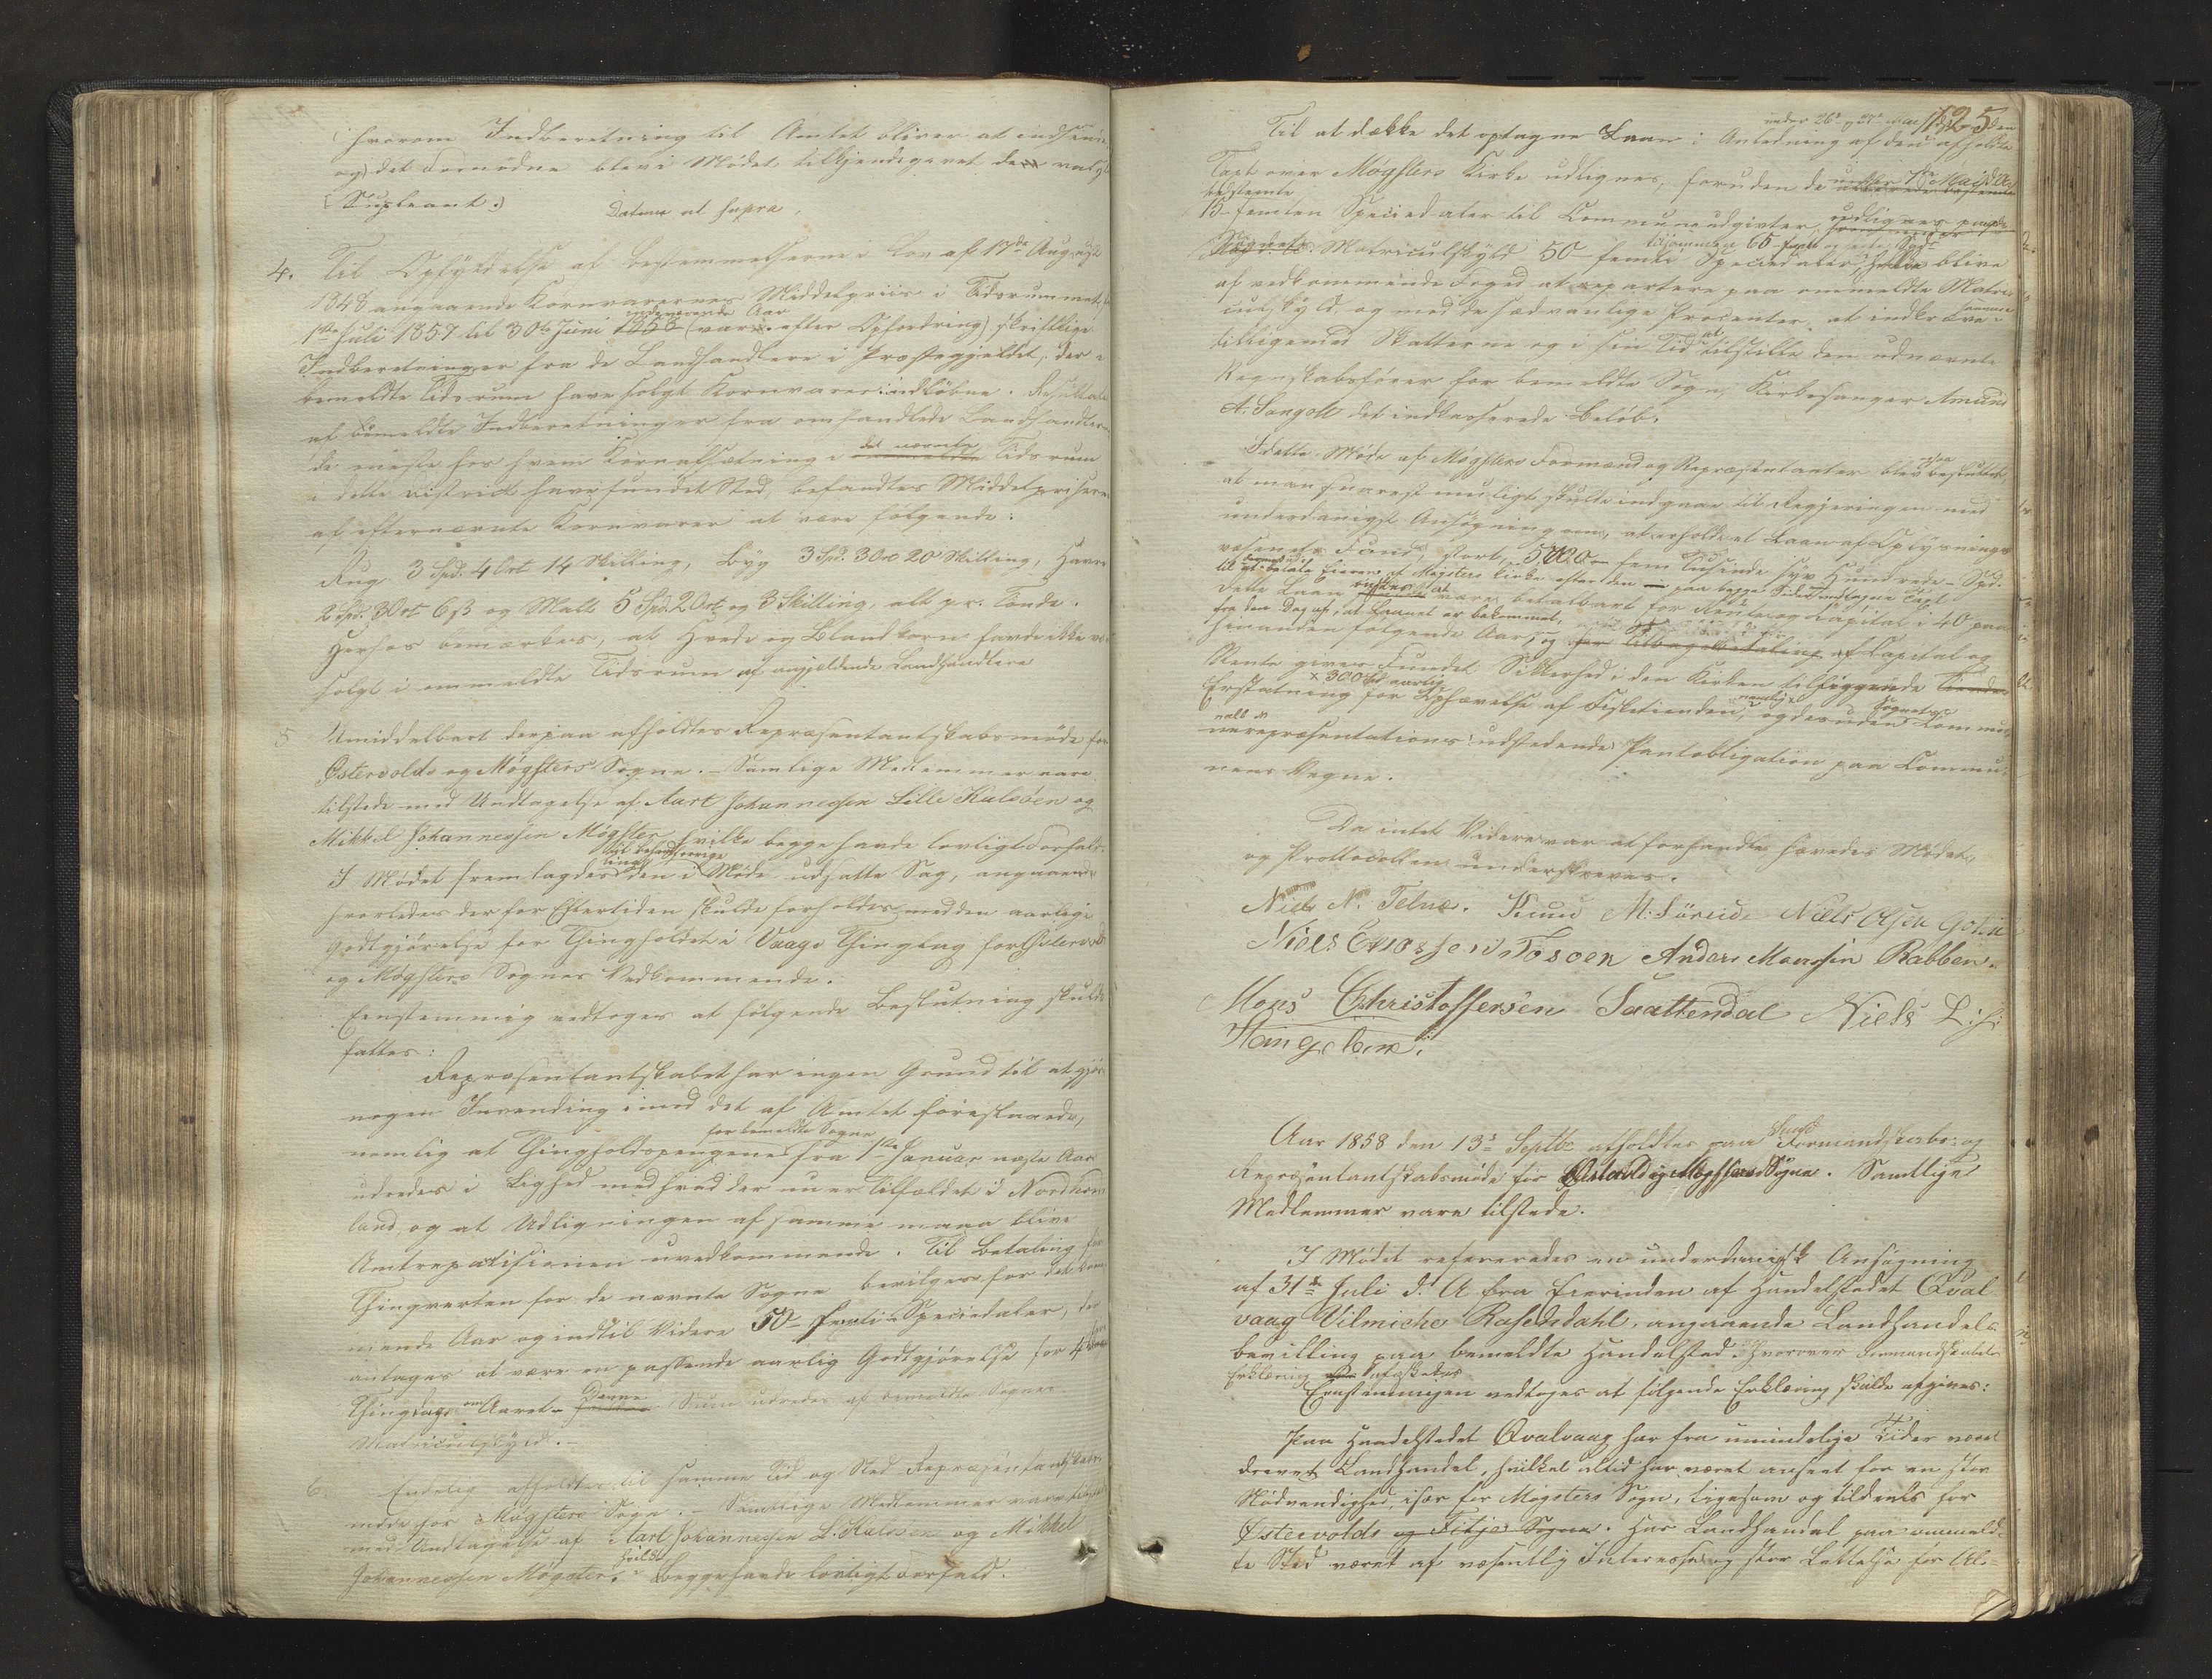 (hvorom Indberetning til Amtet bliver at indsende
og) det Fornødne blev i Mødet tilkjendegivet den valgte
(Supleant.)
Datum ut supra.
4. Til Opfyldelse af Bestemmelserne i Lov af 17de August
1848 angaaende Kornvarernes Middelpriis i Tidsrummet fra
indeværende Aar
1ste Juli 1857 til 30te Juni 1858 (var efter Opfordring) skriftlige
Indberetninger fra de Landhandlere i Præstegjeldet, der i
bemeldte Tidsrum have solgt Kornvarer indløbne. Resultatet
af bemeldte Indberetninger fra omhandlede Landhandlere
det nævnte
de eneste hos hvem Kornafsætning i ommeldte Tidsrum
i dette District have fundet Sted, befandtes Middelpriserne
af efternævnte Kornvarer at være følgende:
Rug 3 Spd. 4 Ort 14 Skilling, Byg 3 Spd. 3 Ort 20 Skilling, Havre
2 Spd. 3 Ort 6 ß og Malt 5 Spd. 2 Ort og 3 Skilling, alt pr. Tønde.
Herhos bemærkes, at Hvede og Blandkorn havde ikke været
solgt i ommeldte Tidsrum af angjældende Landhandlere
5 Umiddelbart derpaa afholdtes Repræsentantskabsmøde for
Østervolds og Møgsters Sogne. – Samtlige Medlemmer vare
tilstede med Undtagelse af Aart Johannessen Lille Kalsøen og
Mikkel Johannessen Møgster hvilke begge havde lovligt Forfald.
til Behandling forrige
I Mødet fremlagdes den i Møde udsatte Sag, angaaende
hvorledes der for Eftertiden skulde forholdes med den aarlige
Godtgjørelse for Thingholdet i Vaags Thinglag for Østervolds
og Møgsters Sognes Vedkommende.
Eenstemmig vedtoges at følgende Beslutning skulde
fattes:
Repræsentantskabet har ingen Grund til at gjøre
nogen Invending imod det af Amtet foreslaaede,
for bemeldte Sogne
nemlig at Thingholdspengene fra 1ste Januar næste Aar
udredes i Lighed med hvad der nu er Tilfældet i Nordhord
land, og at Udligningen af samme maa blive
Amtrepartisionen uvedkommende. Til Betaling for
Thingværten for de nævnte Sogne bevilges for det kom
mende Aar og indtil Videre 50 – femti – Speciedaler, der
antages at være en passende aarlig Godtgjørelse for 4
Denne
Thingdage om Aaret – Summa udredes af bemeldte Sognes
Matriculskyld. –
6. Endelig afholdtes til samme Tid og Sted Repræsentantskabs
møde for Møgsters Sogn. – Samtlige Medlemmer vare tilstede
med Undtagelse af Aart Johannessen L. Kalsøen og Mikkel
hvilke
Johannessen Møgster. begge havde lovligt Forfald.
125
under 26de og 27de Mai
Til at dække det optagne Laan i Anledning af den afholdte
Taxt over Møgsters Kirke udlignes, foruden de under 1ste Mai d. A.
bestemte
15 femten Speciedaler til Communeudgivter, udlignes paa
Sognets tilsammen 65 Spd.
Matriculskyld 50 – femti Speciedaler, blive
af vedkommende Foged at repartere paa ommeldte Matri-
culskyld, og med de sædvanlige Procenter at indkræve samme
at
tilligemed Skatterne og i sin Tid tilstille den udnævnte
Regnskabsfører for bemeldte Sogn, Kirkesanger Amund
A. Sangolt det indkasserede Beløb.
ogsaa
I dette Møde af Møgsters Formænd og Repræsentanter blev besluttet,
at man snarest muligt skulde indgaae til Regjeringen med
underdanigst Ansøgning om, at erholde et Laan af Oplysnings
væsenets Fund, stort 5700 – fem Tusinde syv Hundrede – Spd.
til at betale Eieren af Møgsters Kirke efter den paa begge Sider vedtagne Taxt
Dette Laan ønskes at være betalbart for Rente og Capital i 40 paa
fra den Dag af, at Laanet er bekommet,
hinanden følgende Aar, og for Tilbagebetaling af Capital og
Rente gives Fundet Sikkerhed i den Kirken tilliggende Tiende
x 300 Spd aarlig
Erstatning for Ophævelse af Fisketienden, namlig x og desuden Sognets Commu-
nerepræsentations udstedende Pantobligation paa Commu-
nens Vegne.
Da intet Videre var at forhandle hævedes Mødet,
og Prottocollen underskreves.
Niels N. Telnæs. Knud M. Søreide Niels Olsen Golten
Niels Enossen Tosøen Anders Monssen Rabben.
Mons Christoffersen Saattendal Niels L: H:
Hougsbøe.
Aar 1858 den 13de Septbr afholdtes paa Sund Formandskabs- og
Repræsentantskabsmøde for Østervold og Møgsters Sogne. Samtlige
Medlemmer vare tilstede.
I Mødet refereredes en underdanigst Ansøgning
af 31te Juli d. A. fra Eierinden af Handelstedet Qval
vaag Vilmiche Rasch Dahl, angaaende Landhandels
bevilling paa bemeldte Handelsted. Hvorover Formandskabets
Erklæring udæskedes
Eenstemmigen vedtoges at følgende Erklæring skulde afgives:
Paa Handelstedet Qvalvaag har fra umindelige Tider været
drevet Landhandel, hvilket altid har været anseet for en stor
Nødvendighed, især for Møgsters Sogn, ligesom og tildeels for
Østervolds og Fitje Sogne. Har Landhandel paa ommeld-
te Sted været af væsentlig Interesse og stor Lettelse for Al-